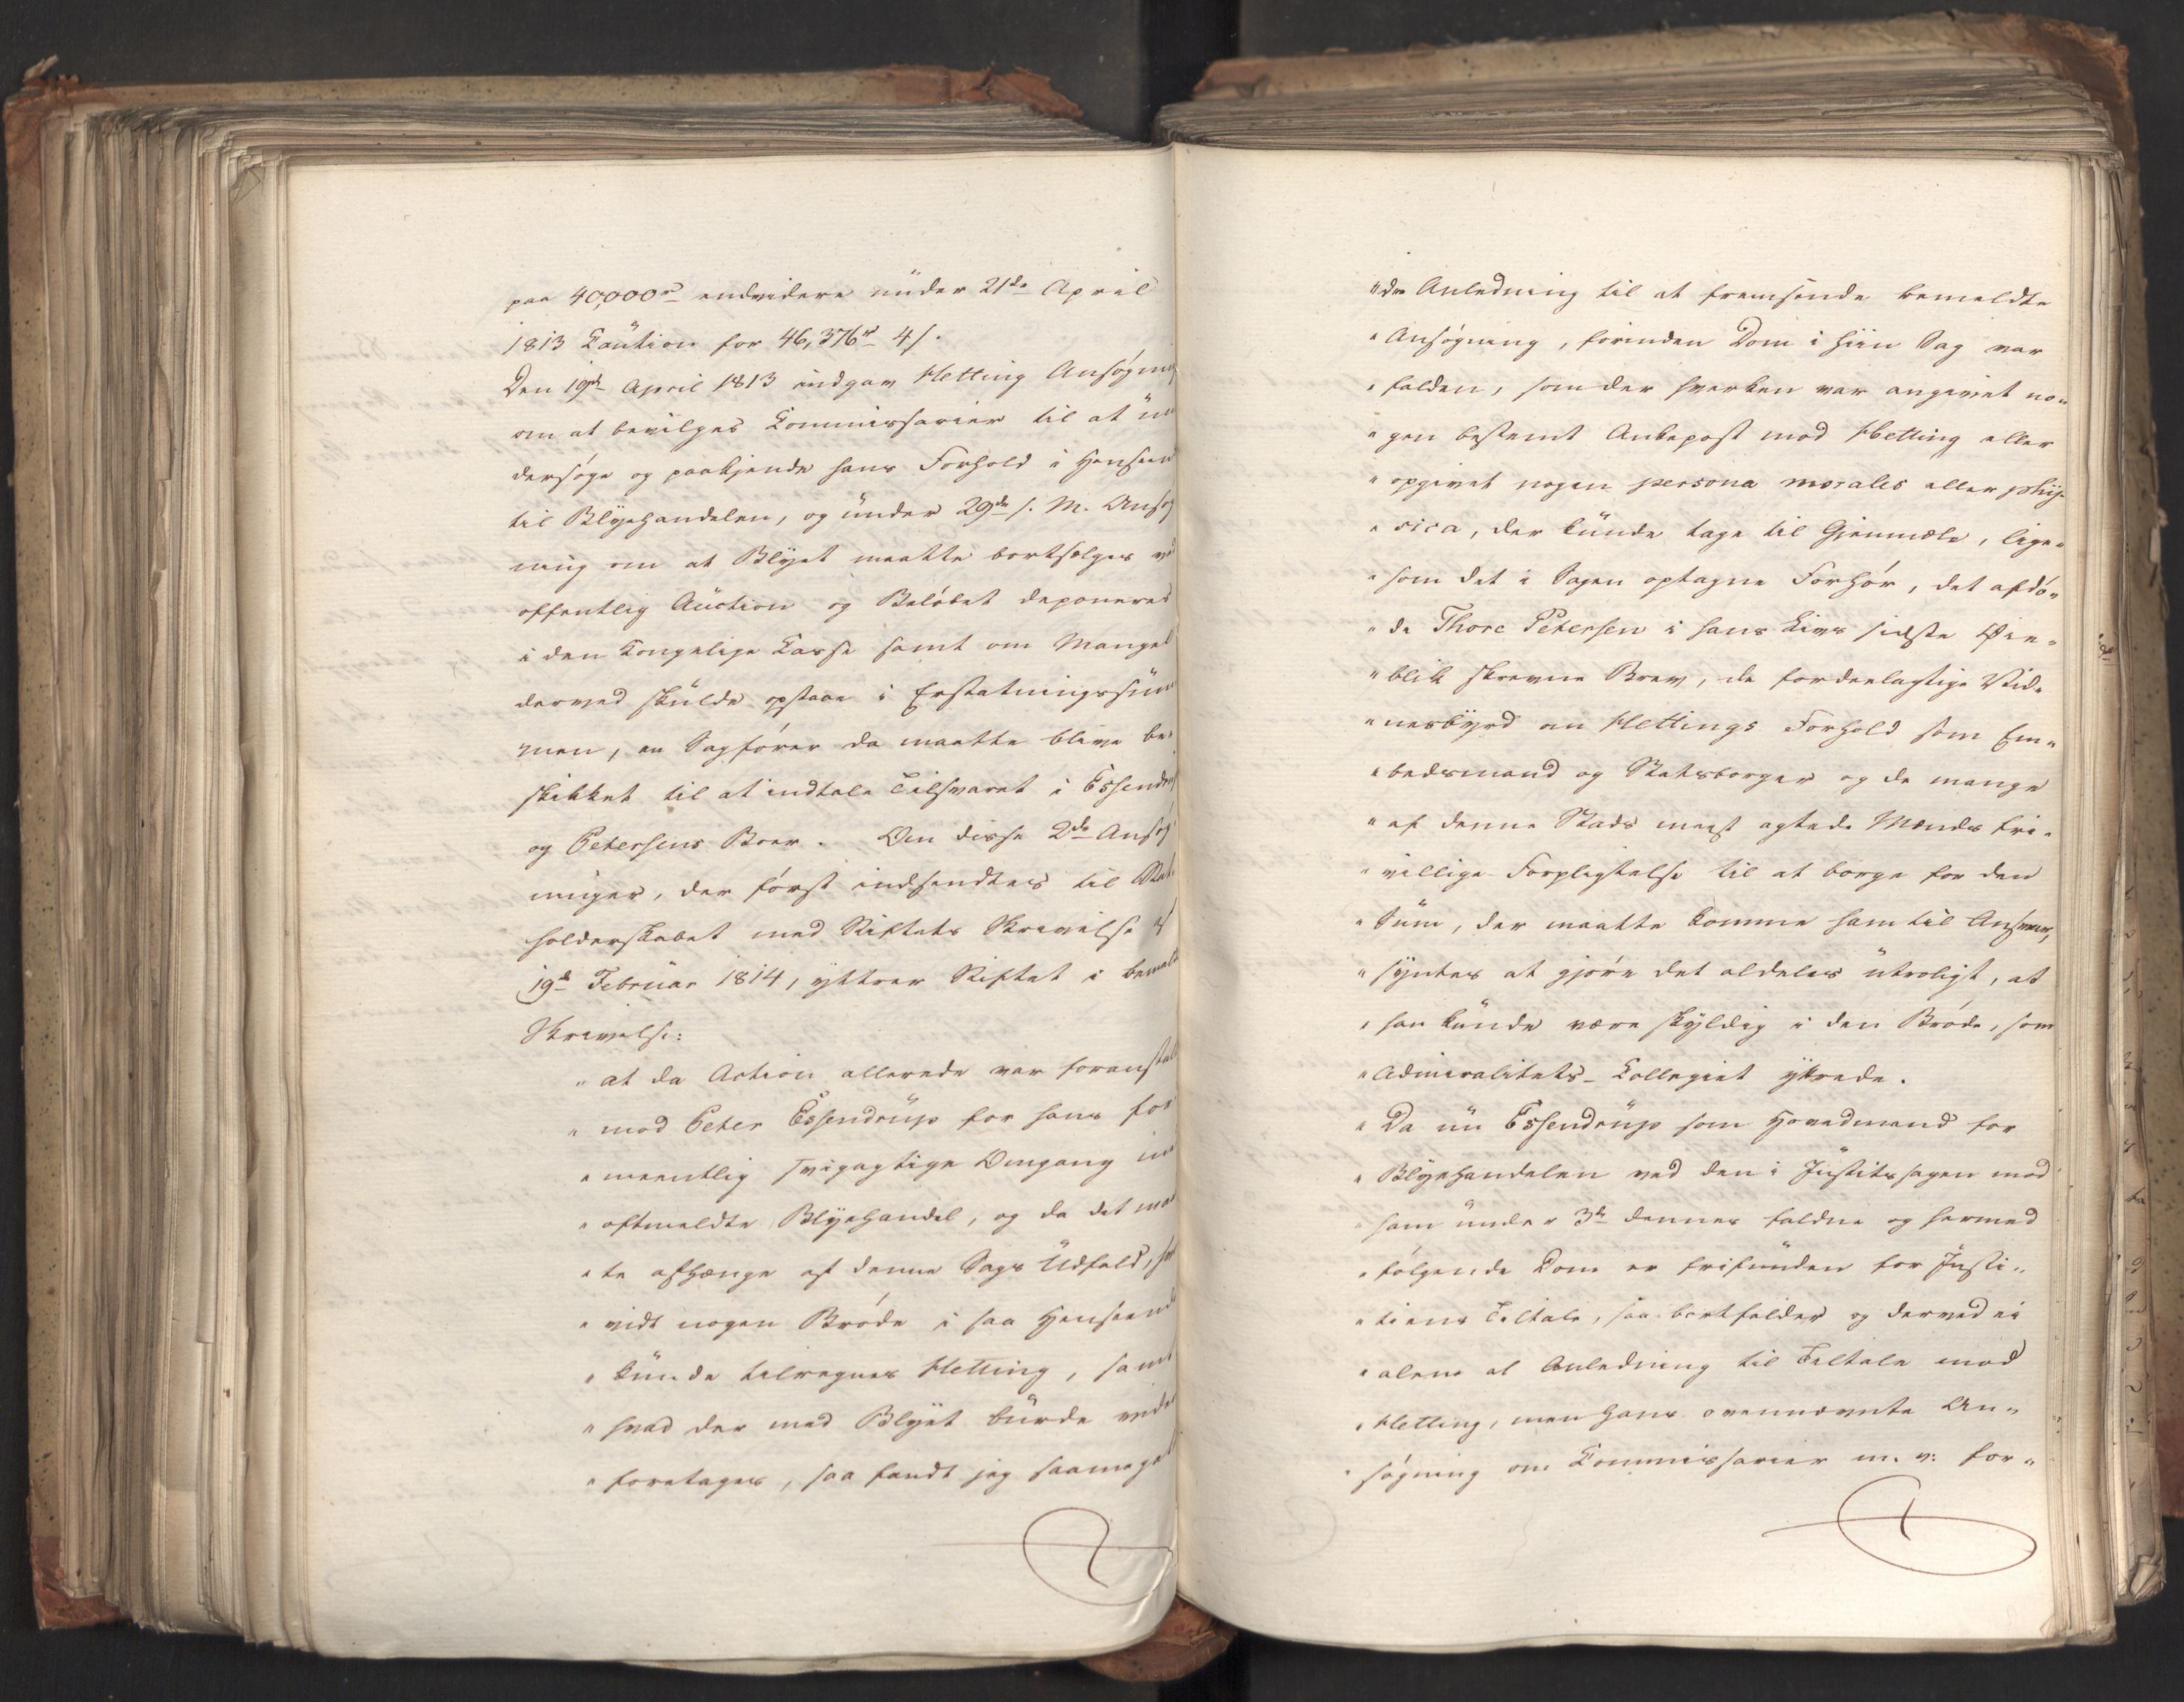 paa 40,000 rd endvidere under 21de April
1813 Caution for 46,376 rd 4 s.
Den 19de April 1813 indgav Hetting Ansøgning
om at bevilges Commissarier til at un
dersøge og paakjende hans Forhold i Henseende
til Blyehandelen, og under 29de s. M. Ansøg
ning om at Blyet maatte bortsælges ved
offentlig Auction og Beløbet deponeres
i den Kongelige Casse samt om Mangel
derved skulde opstaae i Erstatningssum
men, en Sagfører da maatte blive be-
skikket til at indtale Tilsvaret i Essendrops
og Petersens Boer. Om disse 2de Ansøg
ninger, der først indsendtes til Stat-
holderskabet med Stiftets Skrivelse af
19de Februar 1814, yttrer Stiftet i bemeldte
Skrivelse:
" at da Action allerede var foranstaltet
" mod Peter Essendrup for hans for
" meentlig svigagtige Omgang med
" oftmeldte Blyehandel, og da det maat
" te afhænge af denne Sags Udfald, hvor
" vidt nogen Brøde i saa Henseende
" kunde tilregnes Hetting, samt
" hvad der med Blyet burde videre
" foretages, saa fandt jeg saameget
" dre Anledning til at fremsende bemeldte
" Ansøgning, forinden Dom i hiin Sag var
" falden, som der hverken var angivet no-
" gen bestemt Ankepost mod Hetting eller
" opgivet nogen persona morales eller phy-
" sica, der kunde tage til Gjenmæle, lige-
" som det i Sagen optagne Forhør, det afdø-
" de Thore Petersen i hans Livs sidste Øie-
" blik skrevne Brev, de fordeelagtige Vid-
" nesbyrd om Hettings Forhold som Em-
" bedsmand og Statsborger og de mange
" af denne Stads meest agtede Mænds fri-
" villige Forpligtelse til at borge for den
" Sum, der maatte komme ham til Ansvar,
" syntes at gjøre det aldeles utroligt, at
" han kunde være skyldig i den Brøde, som
" Admiralitets-Collegiet yttrede.
" Da nu Essendrup som Hovedmand for
" Blyehandelen ved den i Justitssagen mod
" ham under 3de dennes faldne og hermed
" følgende Dom er frifunden for Justi-
" tiens Tiltale, saa bortfalder og derved ei
" alene al Anledning til Tiltale mod
" Hetting, men hans ovennævnte An-
" søgning om Commissarier m. v. for-